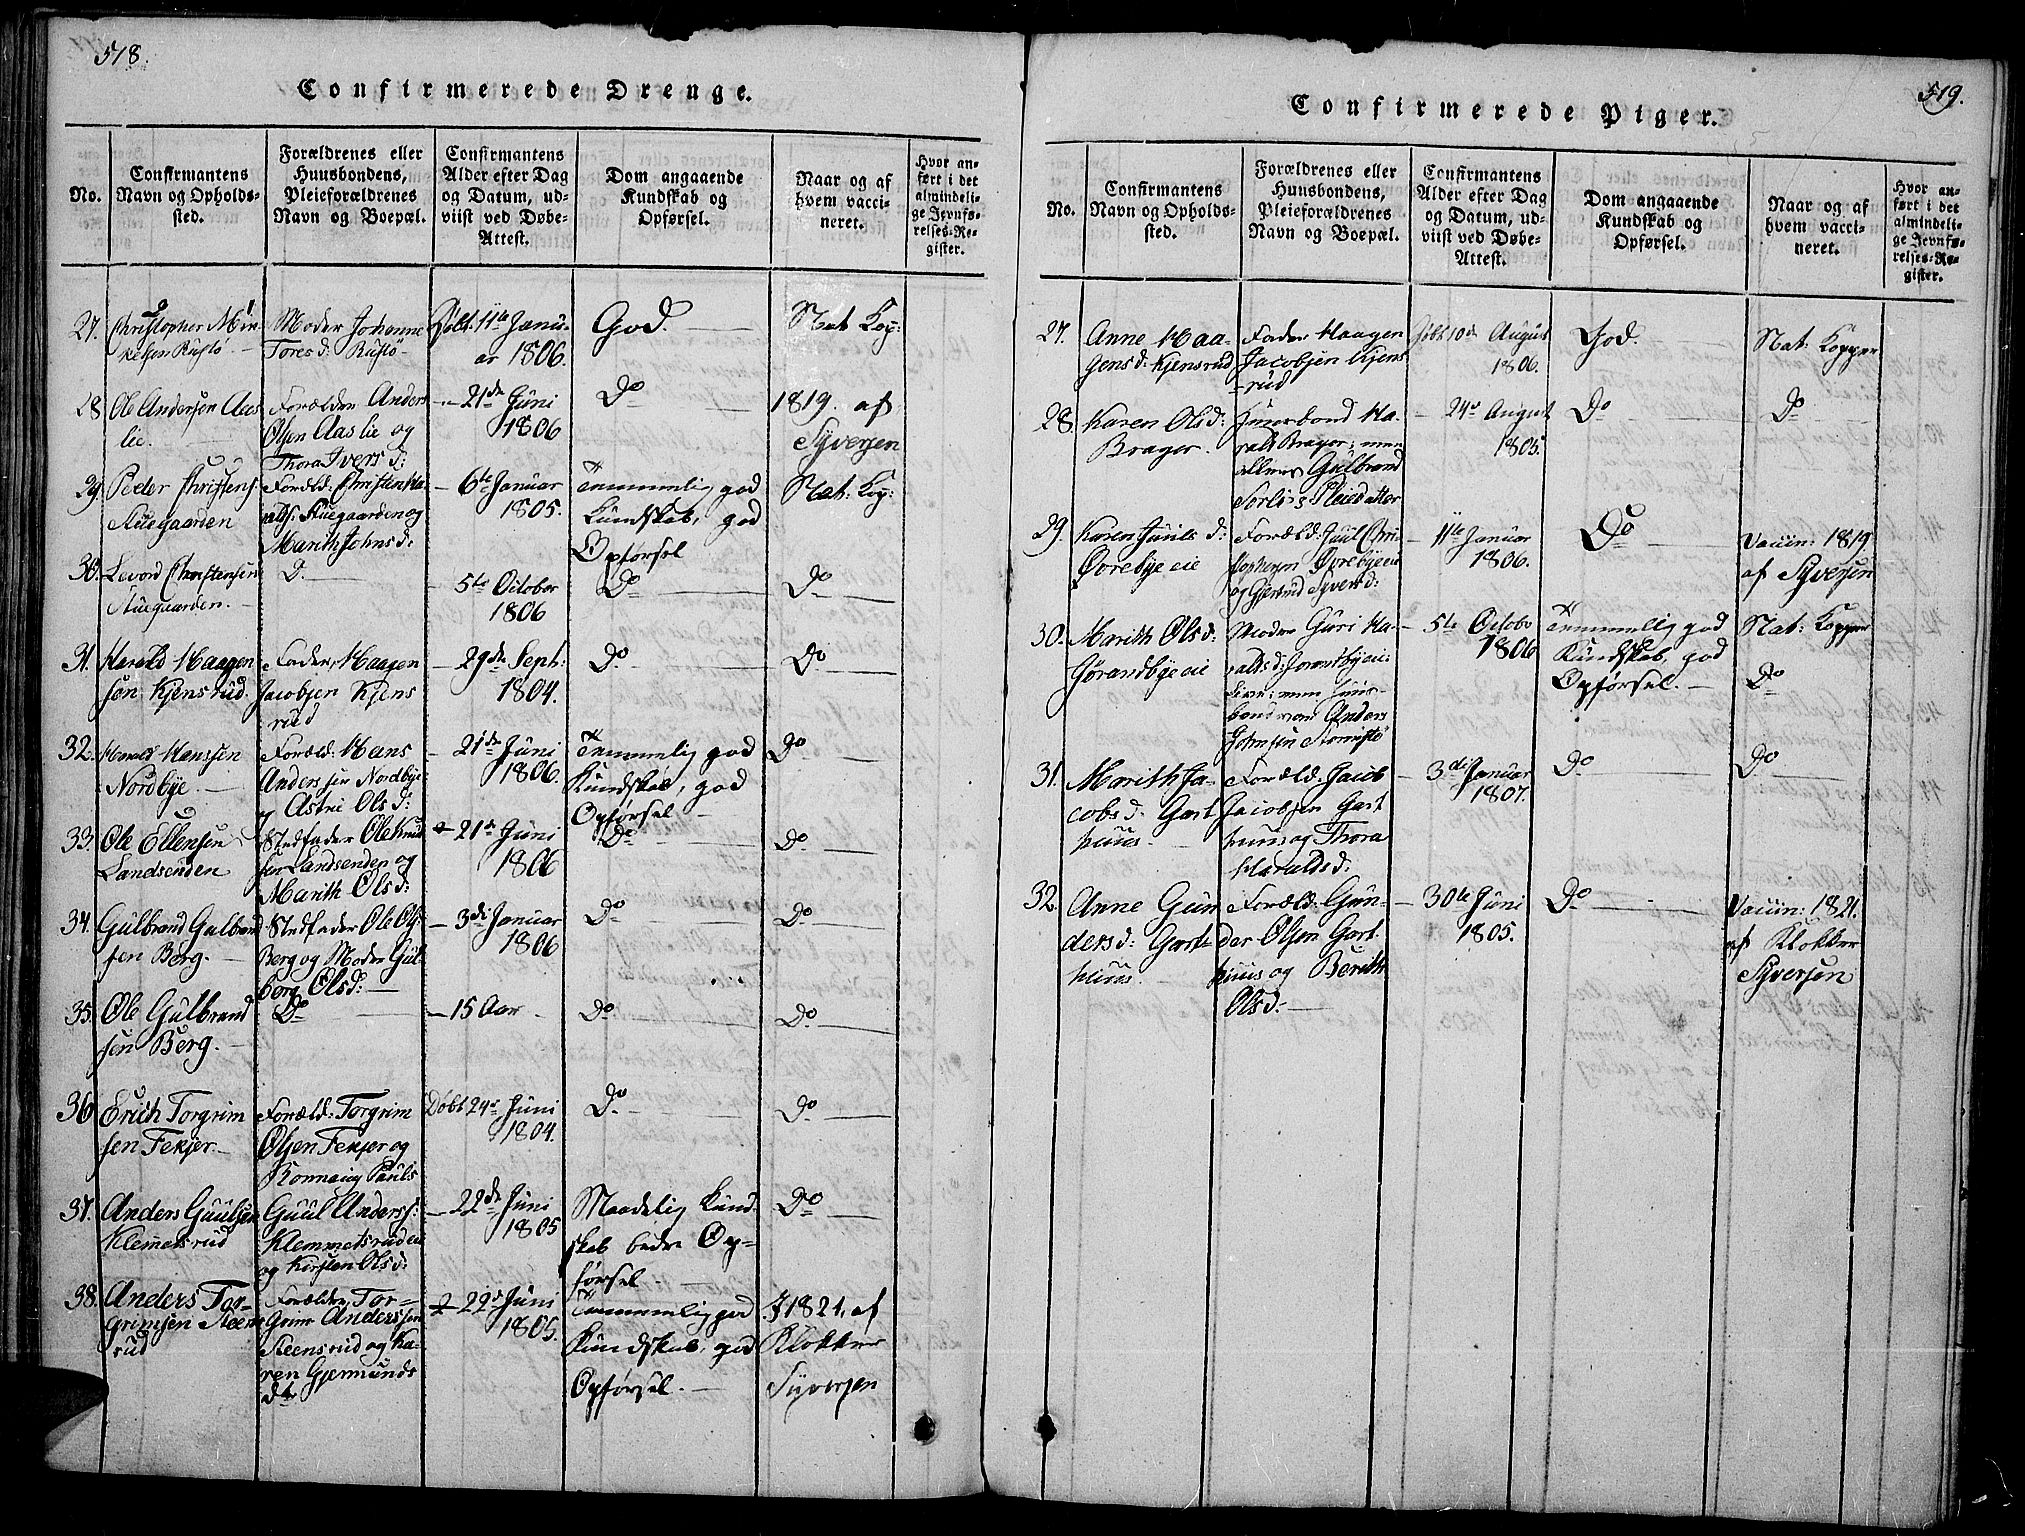 518.
Confirmerede Drenge.
No.
Confirmantens
Navn og Opholds-
sted.
Forældrenes eller
Huusbondens,
Pleieforældrenes
Navn og Boepæl.
Confirmantens
Alder efter Dag
og Datum, ud-
viist ved Døbe-
Attest.
Dom angaaende
Kundskab og
Opførsel.
Naar og af
hvem vacci-
neret.
Hvor an-
ført i det
almindeli-
ge Jevnfø-
relses-Re-
gister.
27.
Christopher Min-
kelsen Rustø
Moder Johanne
Toresd: Rustø
Døbt 11te Janu-
ar 1806.
God.
Nat: Kop:
28
Ole Andersen Aas
lie.
Forældre Anders
Olsen Aaslie og
Thora Ivers d:
21de Juni
1806
Do
1819. af
Syversen
29
Peder Christens:
Stuegaarden
Foræld: Christen Ha-
ralds: Stuegaarden og
Marith Johns d:
6te Januar
1805.
Temmelig god
Kundskab, god
Opførsel
Nat: Kop:
30.
Levord Christensen
Stuegaarden.
D.
5te October
1806
Do
Do
31.
Harald Haagen
sen Kjensrud.
Fader, Haagen
Jacobsen Kjens
rud
29de Sept:
1804.
Do
Do
32.
Harald Hanssen
Nordbye.
Foræld: Hans
Anderssen Nordbye
og Astrie Ols d:
21de Juni
1806.
Temmelig god
Kundskab, god
Opførsel
Do
33.
Ole Ellensen
Landsenden
Stedfader Ole Knud
sen Landsenden og
Marith Ols d:
21de Juni
1806
Do
Do
34.
Gulbrand Gulbrand
sen Berg.
Stedfader Ole Ols:
Berg og Moder Gul
borg Olsd:
3de Januar
1806
Do
Do
35.
Ole Gulbrand
sen Berg.
Do
15 Aar
Do
Do
36
Erich Torgrim
sen Fekjer.
Foræld: Torgrim
Olsen Fekjer og
Ronnaug Pauls
Døbt 24de Juni
1804.
Do
Do
37.
Anders Guulsen
Klemetsrud
Guul Anders:
Klemmetsrudeie
og Kirsten Ols d:
22de Juni
1805
Maadelig Kund
skab bedre Op-
førsel
Do
38.
Anders Tor-
grimsen Steens
rud
Forældre Tor-
grim Anderssen
Steensrud og Ka-
ren Gjermunds
dtr
22de Juni
1805.
Temmelig god
Kundskab, god
Opførsel.
I 1821. af
Klokker
Syversen
519.
Confirmerede Piger.
No.
Confirmantens
Navn og Opholds-
sted.
Forældrenes eller
Huusbondens,
Pleieforældrenes
Navn og Boepæl.
Confirmantens
Alder efter Dag
og Datum, ud-
viist ved Døbe-
Attest.
Dom angaaende
Kundskab og
Opførsel.
Naar og af
hvem vacci-
neret.
Hvor an-
ført i det
almindeli-
ge Jevnfø-
relses-Re-
gister.
27.
Anne Haa-
gens d: Kjensrud
Fader Haagen
Jacobsen Kjens
rud
Døbt 10de August
1806.
God.
Nat: Kopper
28.
Karen Ols d:
Brager.
Huusbond Ha-
rald Brager;
Gulbrand
Sorlies Pleiedatter
24de August
1805.
Do
Do
29.
Karen Juuls d:
Øvrebye eie
Foræld: Juul Chri-
stophersen Øvrebyeeie
og Gjertrud Syvers d:
11te Januar
1806.
Do
Vaccin: 1819
af Syversen
30.
Marith Ols d:
Jørandbye eie
Moder Guri Ha-
ralds d: Jørandbyeeie
Huus-
bond Anders
Johnsen
5te Octobr
1806
Temmelig god
Kundskab, god
Opførsel.
Nat: Kopper
Do
31.
Marith Ja-
cobs d: Gart
huus
Foræld: Jacob
Jacobsen Gart
huus og Thora
Haralds d:
3de Januar
1807.
Do
Do
32.
Anne Gun
ders d: Gart
huus
Foræld: Gun-
der Olsen Gart
huus og Berith
Ols d:
30te Juni
1805.
Do
Vaccin: 1821.
af Klokker
Syversen